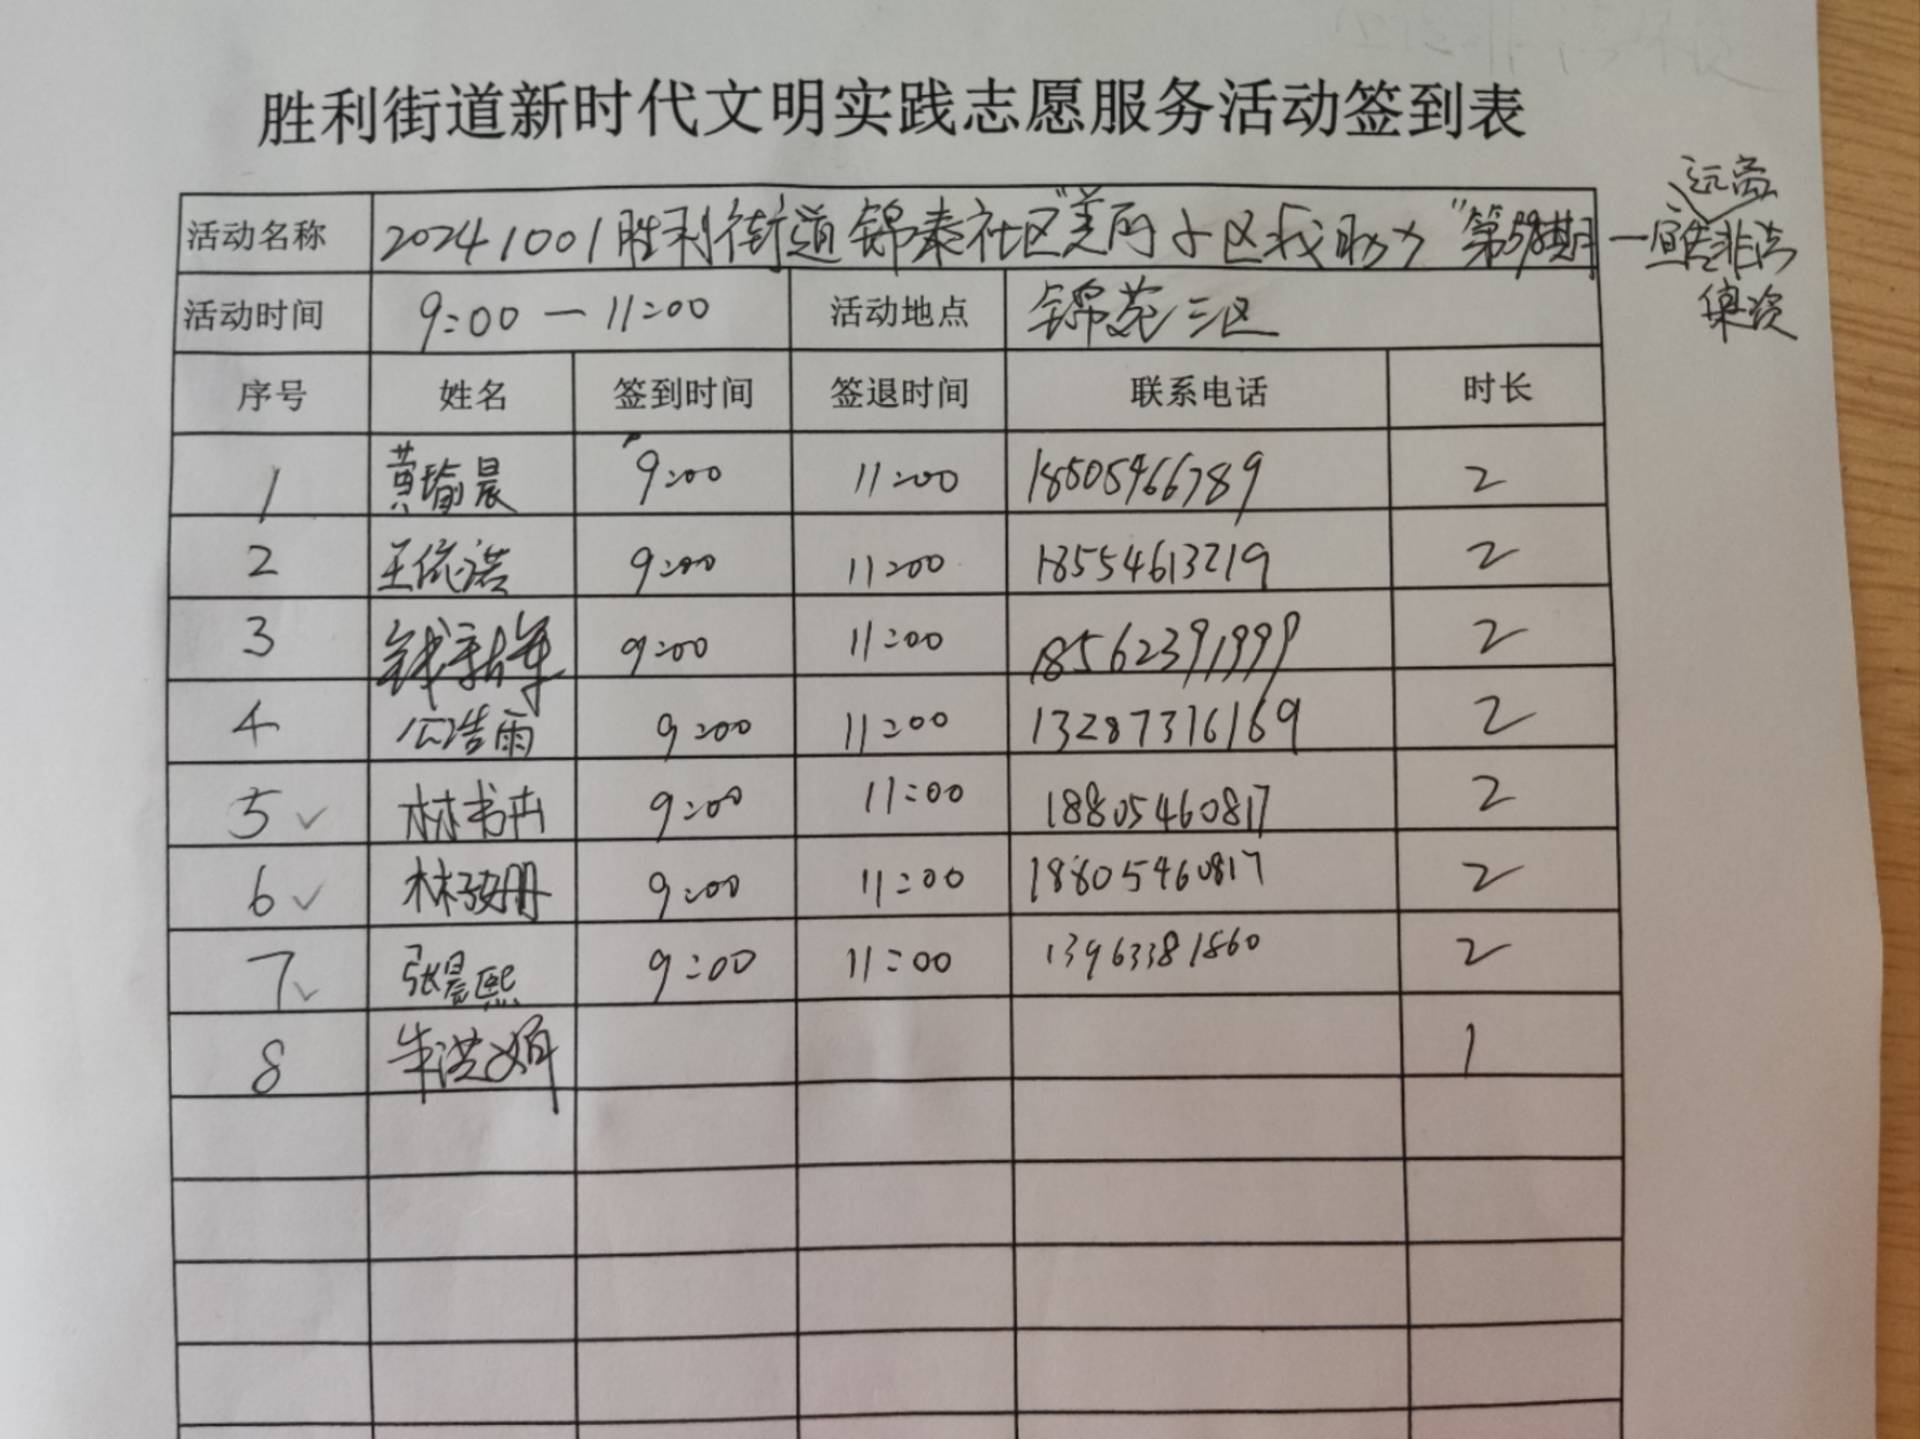 胜利街道新时代文明实践志愿服务活动签到表
活动名称 20241001胜利街道锦泰社区"美丽小区我助力"第598期—宣传远离非法集资
活动时间 9:00—11:00 活动地点 锦苑三区
序号 姓名 签到时间 签退时间 联系电话 时长
1 黄瑜晨 9:00 11:00 18505466789 2
2 王依诺 9:00 11:00 18554613219 2
3 钱新军 9:00 11:00 18562391999 2
4 公浩雨 9:00 11:00 13287316169 2
5 ✓ 林书冉 9:00 11:00 18805460817 2
6 ✓ 林姗 9:00 11:00 18805460817 2
7 ✓ 张晨熙 9:00 11:00 13963381860 2
8 朱洪娟 1